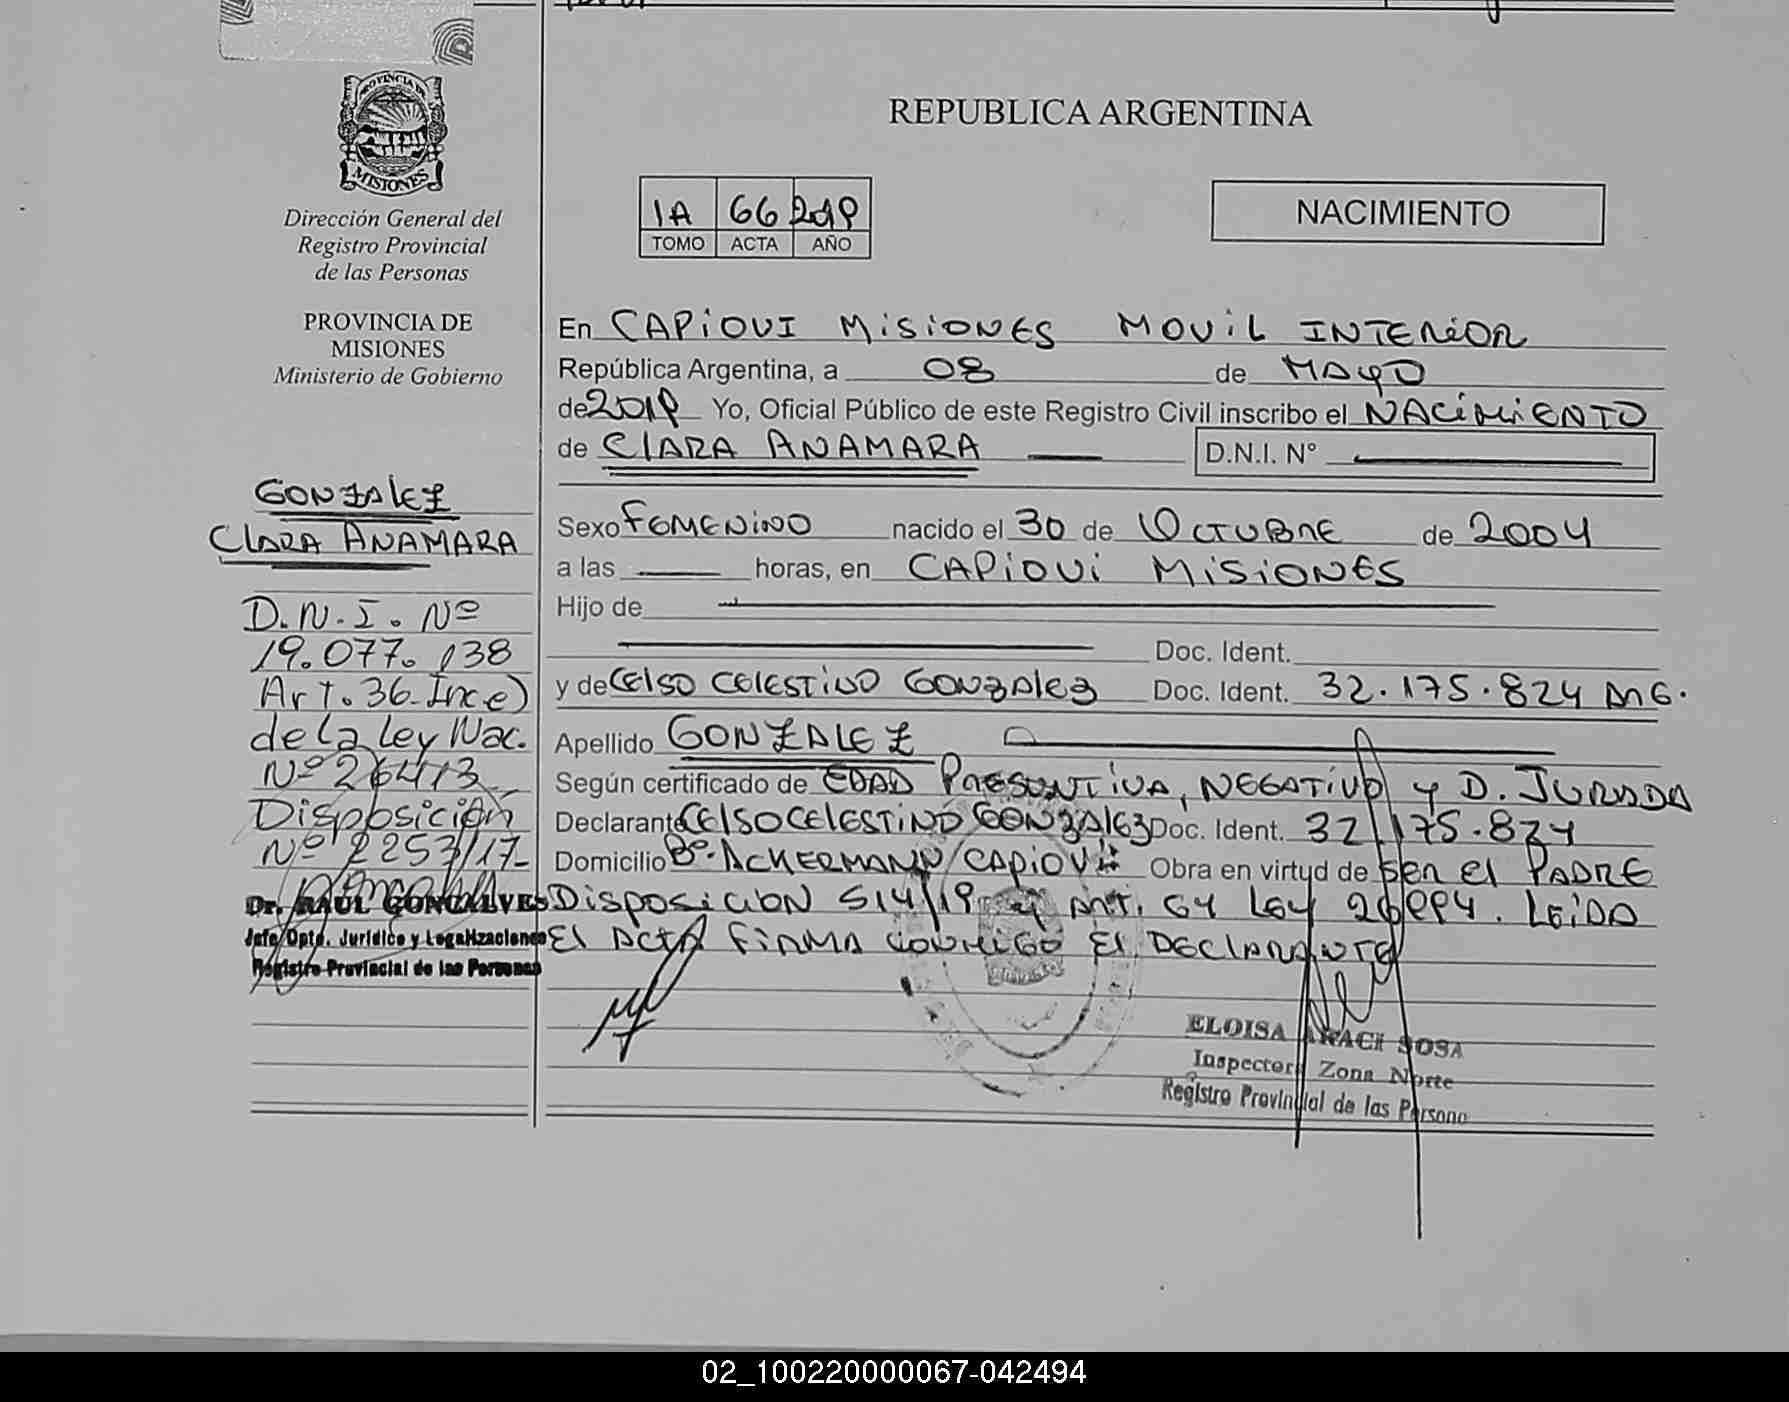 PROVINCIA DE
MISIONES
Dirección General del
Registro Provincial
de las Personas
PROVINCIA DE
MISIONES
Ministerio de Gobierno
GONZALEZ
CLARA ANAMARA
D.N.I. Nº
19.077.138
Art. 36-Inc e)
de la Ley Nac.
Nº 26413
Disposición
Nº 2253/17-
Dr. RAUL GONCALVES
Jefe Dpto. Jurídico y Legalizaciones
Registro Provincial de las Personas
REPUBLICA ARGENTINA
1A 66 2019
TOMO ACTA AÑO
NACIMIENTO
En CAPIOVI MISIONES MOVIL INTERIOR
República Argentina, a 08 de MAYO
de 2019 Yo, Oficial Público de este Registro Civil inscribo el NACIMIENTO
de CLARA ANAMARA D.N.I. N°
Sexo FEMENINO nacido el 30 de OCTUBRE de 2004
a las horas, en CAPIOVI MISIONES
Hijo de
Doc. Ident.
y de CELSO CELESTINO GONZALEZ Doc. Ident. 32.175.824 ARG.
Apellido GONZALEZ
Según certificado de EDAD PRESUNTIVA, NEGATIVO y D. JURADA
Declarante CELSO CELESTINO GONZALEZ Doc. Ident. 32.175.824
Domicilio Bº. ACKERMANN CAPIOVI Obra en virtud de SER EL PADRE
DISPOSICION 514/19 y ART. 64 LEY 26994. LEIDO
EL ACTA FIRMA CONMIGO EL DECLARANTE
ELOISA ARACI SOSA
Inspectora Zona Norte
Registro Provincial de las Persona
02_100220000067-042494